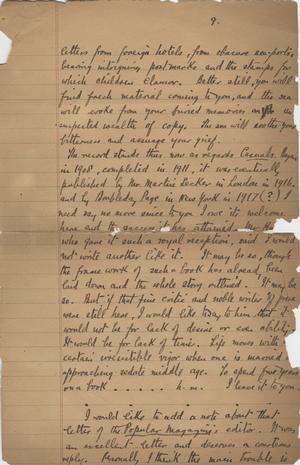 9.
letters from foreign hotels, from obscure sea-ports,
bearing intriguing postmarks and the stamps for
which children clamor. Better still, you will
find fresh material coming to you, and the sea
will evoke from your buried memories an un
suspected wealth of copy. The sea will soothe your
bitterness and assuage your grief.
The record stands thus now as regards Casuals.
in 1908, completed in 1911, it was eventually
published by Mr Martin Secker in London in 1916.
and by Doubleday, Page in New York in 1917 (?) I
need say no more since to you I owe its welcome
here and the success it has attained.
who gave it such a royal reception, and I would
not write another like it. It may be so, though
the frame work of such a book has already been
laid down and the whole story outlined. It may be
so. But if that fine critic and noble writer
were still here, I would like today to him, that it
would not be for lack of desire or even ability.
It would be for lack of time. Life moves with a
certain irresistible vigor when one is married &
approaching sedate middle age. To spend five years
on a book . . . . . h.m. I leave it to you.
. . . . . . . . . .
I would like to add a note about that
letter of the Popular Magazine's editor. It was
an excellent letter and deserves a courteous
reply. I think the main trouble is